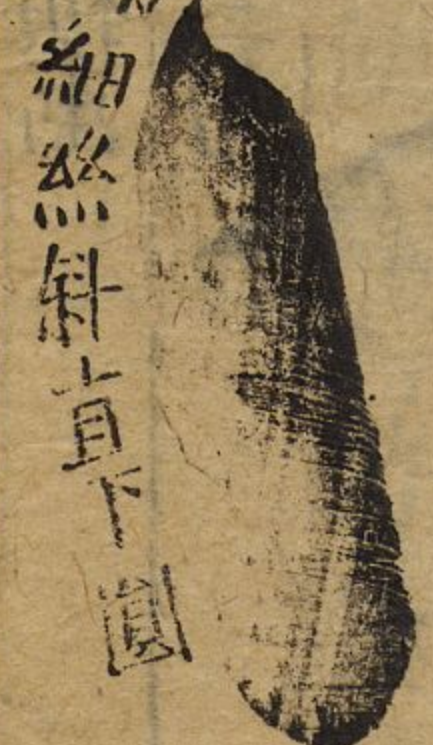 細絲斜直下圓